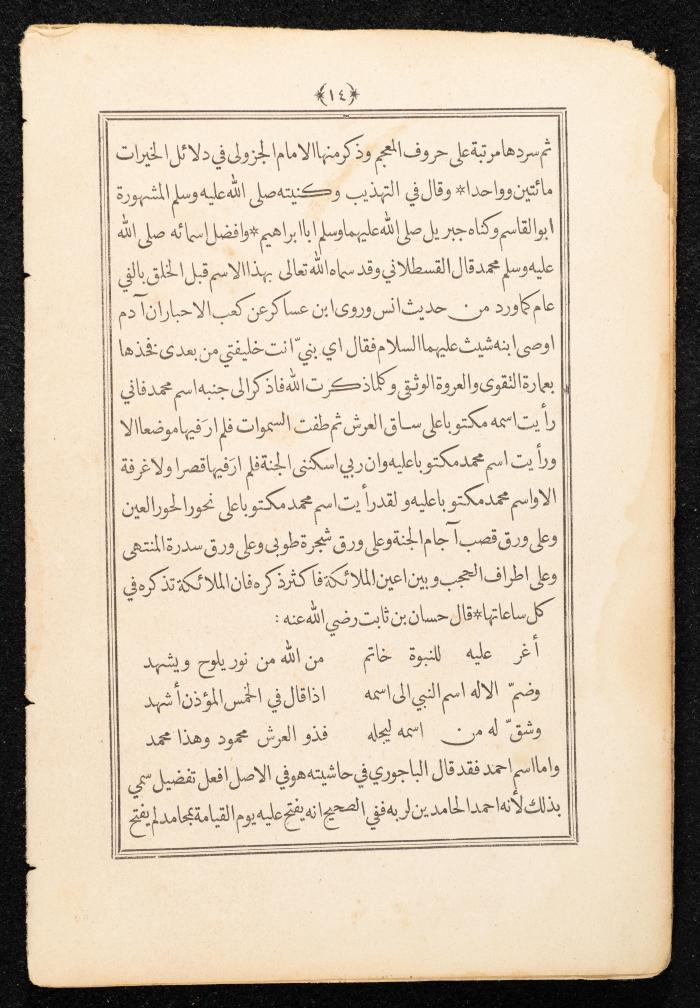 ﴿١٤﴾
ثم سردها مرتبة على حروف المعجم وذكر منها الامام الجزولى في دلائل الخيرات
مائتين وواحدا * وقال في التهذيب وكنيته صلى الله عليه وسلم المشهورة
ابو القاسم وكناه جبريل صلى الله عليهما وسلم ابا ابراهيم * وافضل اسمائه صلى الله
عليه وسلم محمد قال القسطلاني وقد سماه الله تعالى بهذا الاسم قبل الخلق بالفي
عام كما ورد من حديث انس وروى ابن عساكر عن كعب الاحبار ان آدم
اوصى ابنه شيث عليهما السلام فقال اي بنيّ انت خليفتي من بعدى فخذها
بعمارة التقوى والعروة الوثقى وكلما ذكرت الله فاذكر الى جنبه اسم محمد فاني
رأيت اسمه مكتوبا على ساق العرش ثم طفت السموات فلم ارَ فيها موضعا الا
ورأيت اسم محمد مكتوبا عليه وان ربي اسكننى الجنة فلم ارَ فيها قصرا ولا غرفة
الا واسم محمد مكتوبا عليه ولقد رأيت اسم محمد مكتوبا على نحور الحور العين
وعلى ورق قصب آجام الجنة وعلى ورق شجرة طوبى وعلى ورق سدرة المنتهى
وعلى اطراف الحجب وبين اعين الملائكة فاكثر ذكره فان الملائكة تذكره في
كل ساعاتها * قال حسان بن ثابت رضي الله عنه :
أغر عليه للنبوة خاتم من الله من نور يلوح ويشهد
وضمّ الاله اسم النبي الى اسمه اذا قال في الخمس المؤذن أشهد
وشقّ له من اسمه ليجله فذو العرش محمود وهذا محمد
واما اسم احمد فقد قال الباجوري في حاشيته هو في الاصل افعل تفضيل سمي
بذلك لأنه احمد الحامدين لربه ففي الصحيح انه يفتح عليه يوم القيامة بمحامد لم يفتح